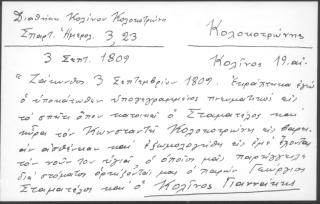 Διαθήκη Κολίνου Κολοκοτρώνη
Σπαρτ. Ἡμερολ. 3, 23
Κολοκοτρώνης
3 Σεπτ. 1809
Κολῖνος 19. αἰ.
"Ζάκυνθος 3 Σεπτεμβρίου 1809. ἐγὼ
ὁ ὑποκάτωθεν ὑπογεγραμμένος πνευματικὸς εἰς
τὸ σπίτι ὅπου κατοικεῖ ὁ Σταματέλος καὶ
τὸν Κωνσταντῆ Κολοκοτρώνη εἰς βαρεῖ-
αν ἀσθένειαν καὶ ἐξωμολογήθη εἰς ἐμὲ ἔχοντας
τὸν νοῦν του ὑγιᾶ. ὁ ὁποῖος μᾶς
διὰ στόματος μας ὁ παρὼν Γεώργιος
Σταματέλος καὶ ὁ Κολῖνος Γιαννάκης